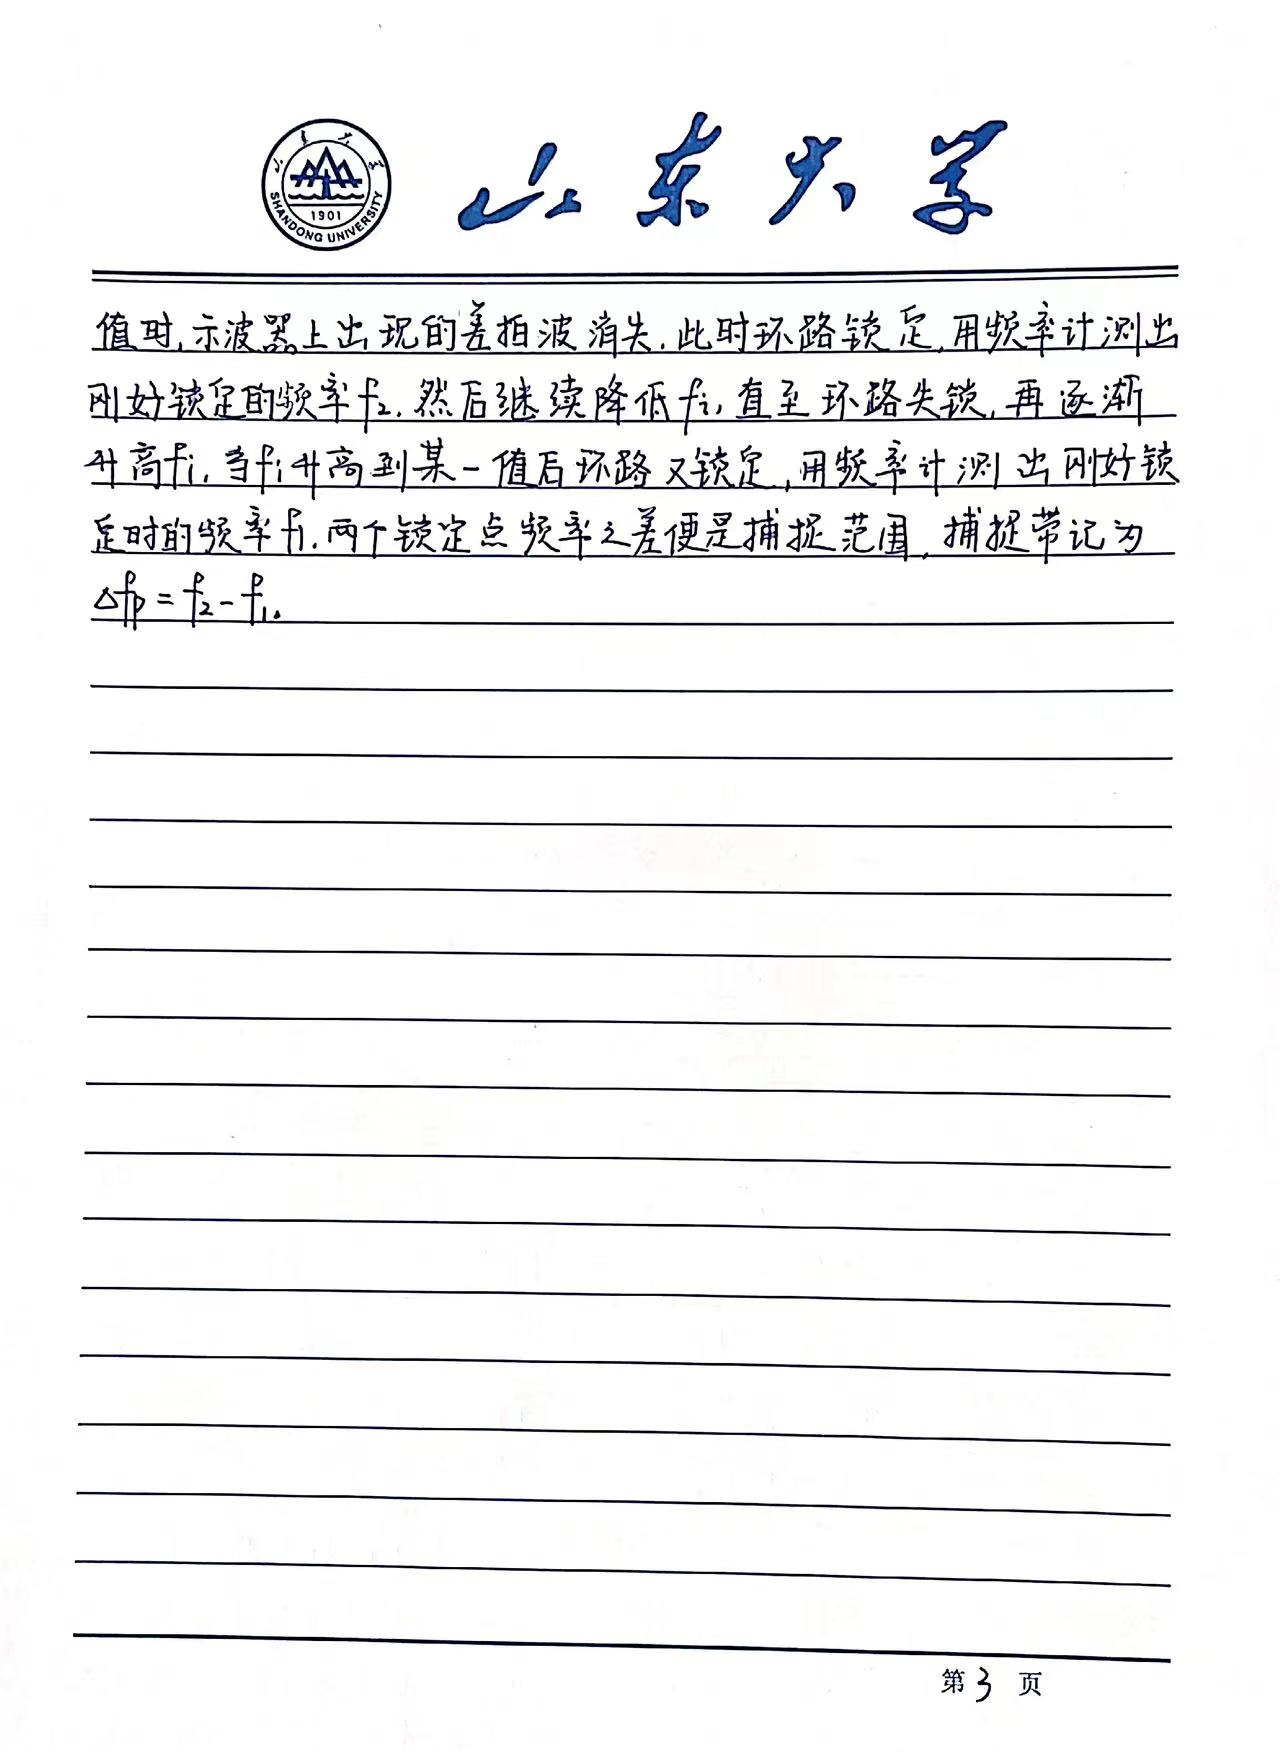 山东大学
1901
SHANDONG UNIVERSITY
山东大学
值时,示波器上出现的差拍波消失.此时环路锁定,用频率计测出
刚好锁定的频率f₂.然后继续降低fi,直至环路失锁,再逐渐
升高fi,当fi升高到某一值后环路又锁定,用频率计测出刚好锁
定时的频率f₁.两个锁定点频率之差便是捕捉范围,捕捉带记为
△fp=f₂-f₁。
第3页